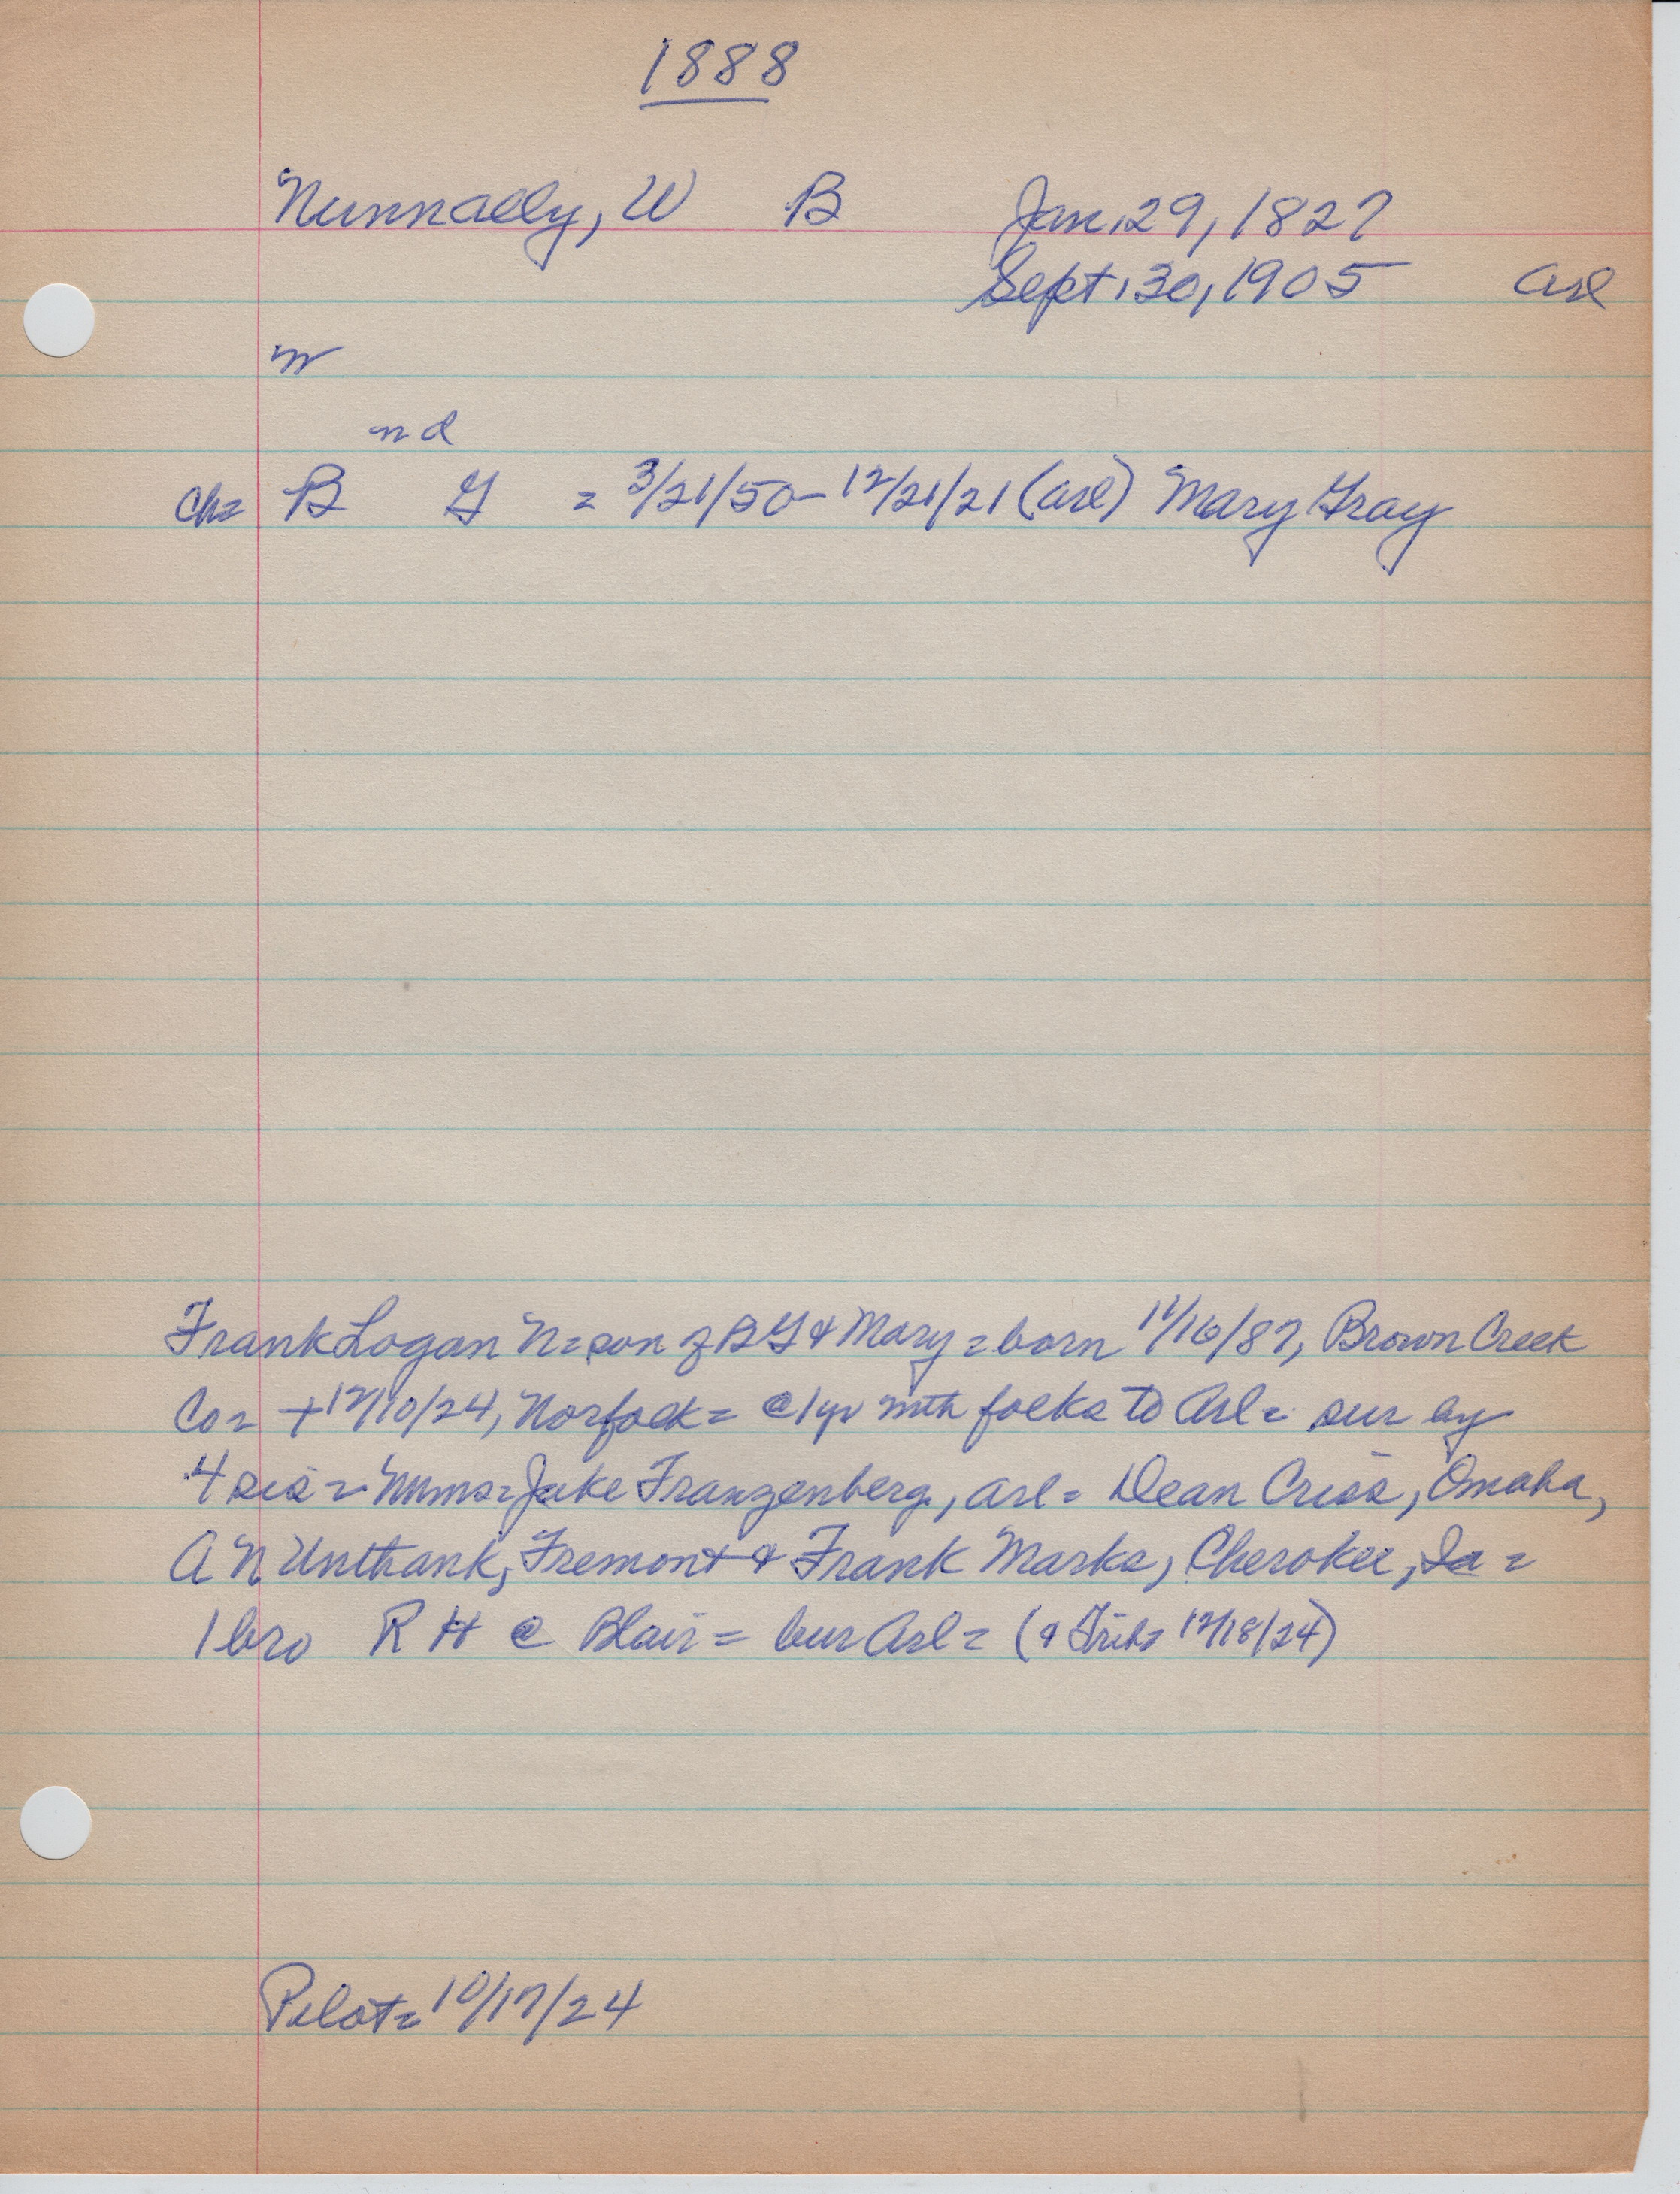 1888
Nunnally, W B Jan. 29, 1827
Sept. 30, 1905 Arl
m
nd
Ch= B G = 3/21/50 - 12/21/21 (Arl) Mary Gray
Frank Logan N = son of B G & Mary = born 11/16/87, Brown Creek
Co = + 12/10/24, Norfolk = @ 1 yr with folks to Arl = sur by
4 sis = Mmes = Jake Franzenberg, Arl = Dean Criss, Omaha,
A N Unthank, Fremont & Frank Marks, Cherokee, Ia =
1 bro R H @ Blair = bur Arl = ( Trib = 12/18/24)
Pilot = 10/17/24